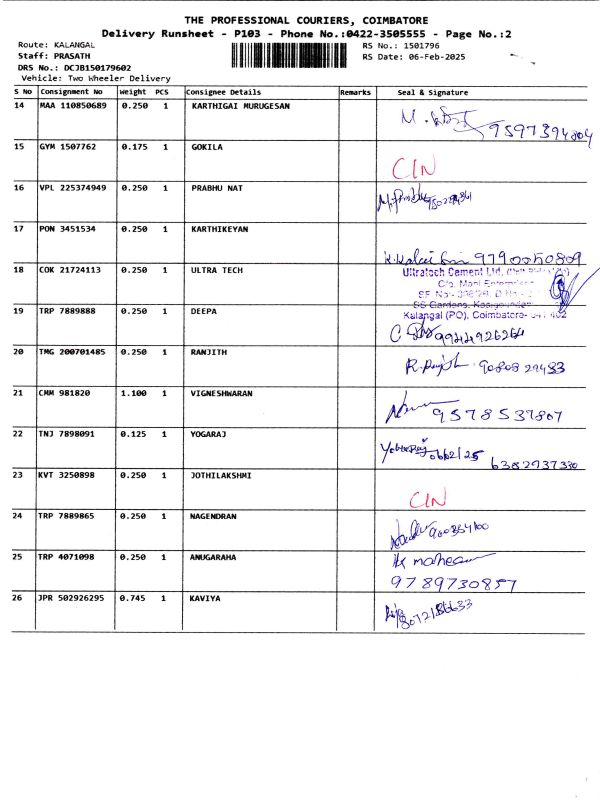 THE PROFESSIONAL COURIERS, COIMBATORE
Delivery Runsheet - P103 - Phone No.:0422-3505555 - Page No.:2
Route: KALANGAL
RS No.: 1501796
Staff: PRASATH
RS Date: 06-Feb-2025
DRS No.: DCJB150179602
Vehicle: Two Wheeler Delivery
S No Consignment No Weight PCS Consignee Details Remarks Seal & Signature
14 MAA 110850689 0.250 1 KARTHIGAI MURUGESAN
9597394804
15 GYM 1507762 0.175 1 GOKILA
CIN
16 VPL 225374949 0.250 1 PRABHU NAT
17 PON 3451534 0.250 1 KARTHIKEYAN
9790050809
18 COK 21724113 0.250 1 ULTRA TECH
Ultratech Cement Ltd.
C/o. Mani Enterprises
SF. No.
SS Gardens,
Kalangal (PO), Coimbatore- 641 402
19 TRP 7889888 0.250 1 DEEPA
9944926264
20 TMG 200701485 0.250 1 RANJITH
90808 29483
21 CMM 981820 1.100 1 VIGNESHWARAN
9578537807
22 TNJ 7898091 0.125 1 YOGARAJ
6382937330
23 KVT 3250898 0.250 1 JOTHILAKSHMI
CIN
24 TRP 7889865 0.250 1 NAGENDRAN
25 TRP 4071098 0.250 1 ANUGARAHA
9789730857
26 JPR 502926295 0.745 1 KAVIYA